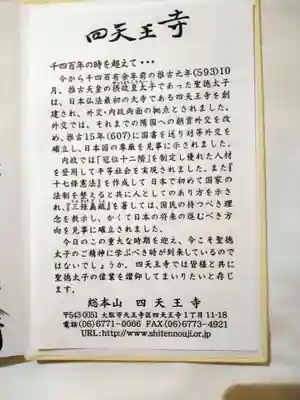 四天王寺
千四百年の時を超えて・・・
今から千四百有余年前の推古元年(593)10
月、推古天皇の摂政皇太子であった聖徳太子
は、日本仏法最初の大寺である四天王寺を創
建され、外交・内政両面の拠点とされました。
外交では、それまでの隋国への朝貢外交を改
め、推古15年(607)に国書を送り対等外交を
確立し、日本国の尊厳を見事に示されました。
内政では『冠位十二階』を制定し優れた人材
を登用して平等社会を実現されました。また『
十七條憲法』を作成して日本で初めて国家の
法制を整えると共に人としてのあり方を示さ
れ、『三経義疏』を著しては、国民の持つべき理
念を教示し、かくて日本の将来の進むべき方
向を見事に確立されました。
今日のこの重大な時期を迎え、今こそ聖徳
太子のご精神に学ぶべき時が到来しているので
はないでしょうか。四天王寺では皆様と共に
聖徳太子の偉業を讃仰してまいりたいと存じ
ます。
総本山 四天王寺
〒543-0051 大阪市天王寺区四天王寺1丁目11-18
電話(06)6771-0066 FAX(06)6773-4921
URL:http://www.shitennouji.or.jp